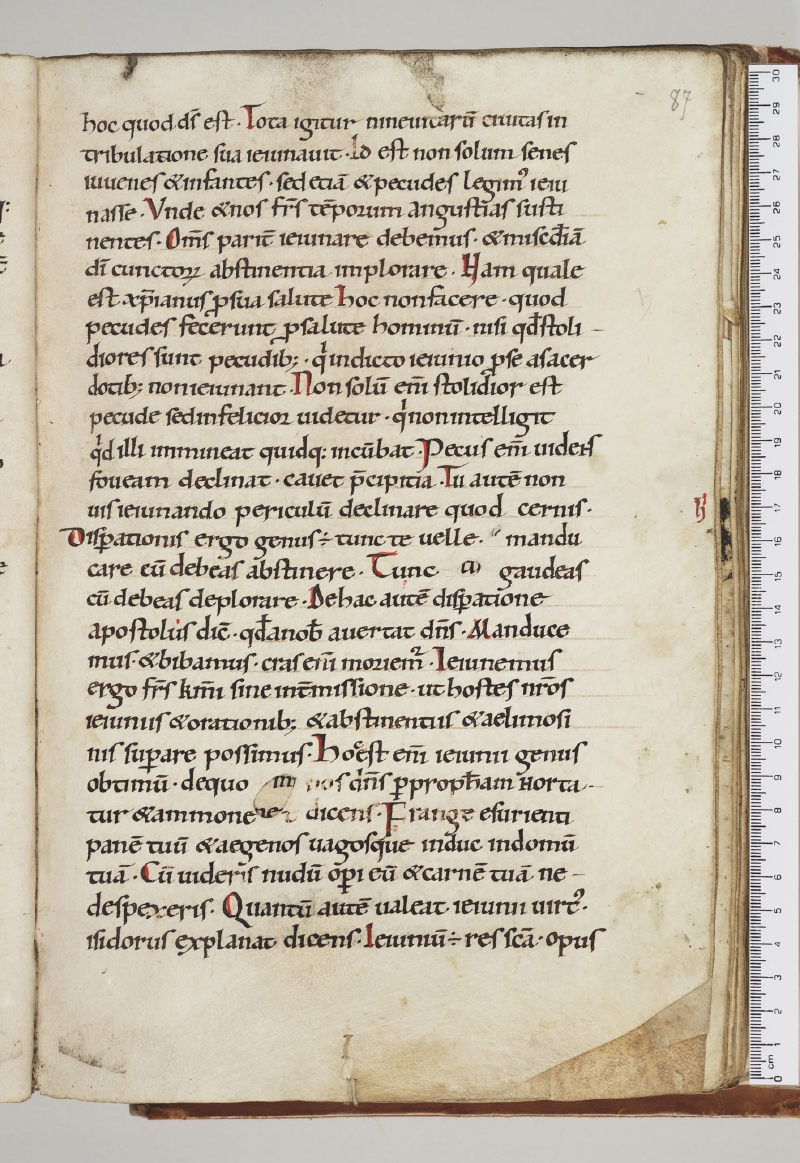 87
hoc quod ds̄ est · Tota igitur nineuitarū ciuitas in
tribulatione sua ieiunauit · Id est non solum senes
iuuenes & infantes · sed etiā & pecudes legim᷒ ieiu
nasse · Vnde & nos frs̄ tēporum angustias susti
nentes · Om̄s parit̄ ieiunare debemus · & miscd̄iā
dī cunctoꝝ abstinentia implorare · Nam quale
est xp̄ianus ꝓ sua salute hoc non facere · quod
pecudes fecerunt ꝓ salute hominū · nisi qd̄ stoli-
diores sunt pecudib; · qͥ indicto ieiunio ꝓ se a sacer
dotib; non ieiunant · Non solū eni᷒ stolidior est
pecude sed infelicior uidetur · qͥ non intelligit
qͥd illi immineat quidq; incūbat · Pecus enī uidens
foueam declinat · cauet p̄cipitia · Tu autē non
uis ieiunando periculū declinare quod cernis ·
Disꝑationis ergo genus ÷ tunc te uelle mandu
care cū debeas abstinere · Tunc gaudeas
cū debeas deplorare · De hac autē disꝑatione
apostolus dic̄ · qd̄ a nob̄ auertat dn̄s · Manduce
mus · & bibamus · cras enī moriem᷒ · Ieiunemus
ergo frs̄ km̄i sine int̄missione · ut hostes nr̄os
ieiuniis & orationib; & abstinentiis & aelimosi
nis suꝑare possimus · Hoc est enī ieiunii genus
obtimū · de quo nos dn̄s ꝑ prophām horta-
tur & ammonet dicens · Frange esurienti
panē tuū & aegenos uagosque induc in domū
tuā · Cū uideris nudū oꝑi eū & carnē tuā ne-
despexeris · Quantū autē ualeat ieiunii uirt᷒ ·
isidorus explanat dicens · Ieiuniū ÷ res sc̄a · opus